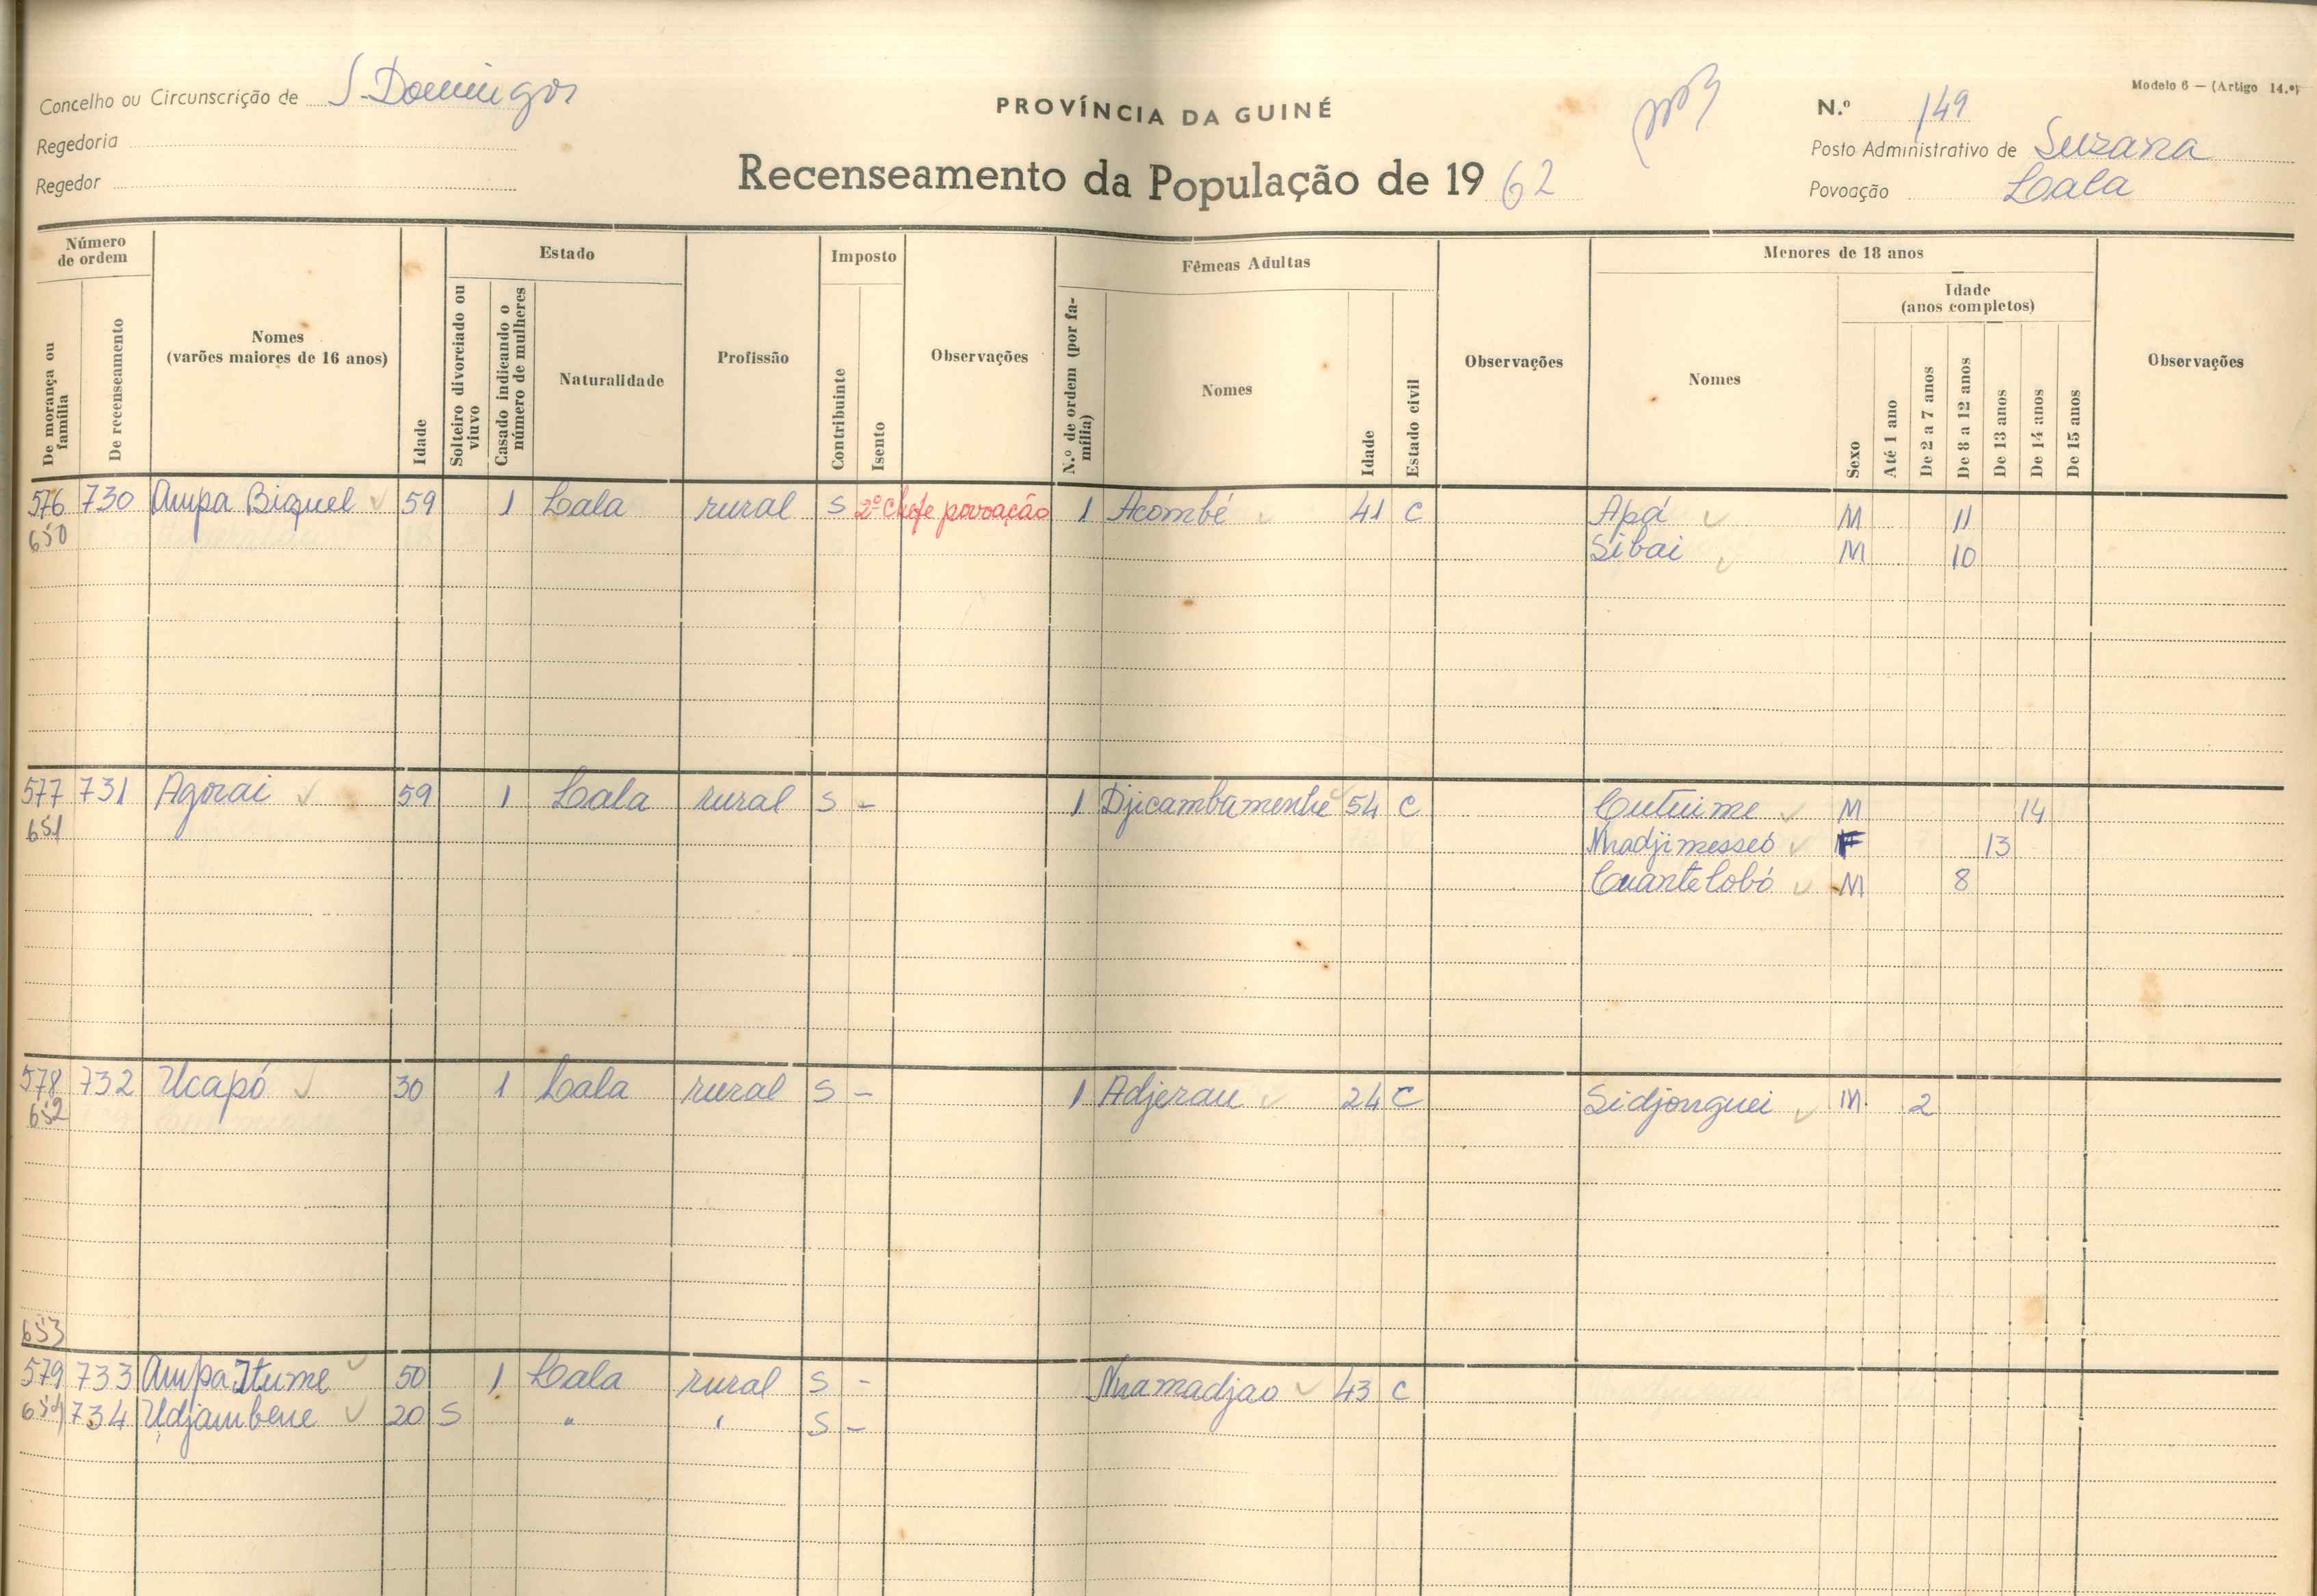 Concelho ou Circunscrição de S. Domingos
Regedoria
Regedor
PROVÍNCIA DA GUINÉ
Recenseamento da População de 1962
Modelo 6 — (Artigo 14.º)
N.º 149
Posto Administrativo de Suzana
Povoação Lala
Número de ordem
De morança ou família
De recenseamento
Nomes
(varões maiores de 16 anos)
Idade
Estado
Solteiro divorciado ou viuvo
Casado indicando o número de mulheres
Naturalidade
Profissão
Imposto
Contribuinte
Isento
Observações
Fêmeas Adultas
N.º de ordem (por família)
Nomes
Idade
Estado civil
Observações
Menores de 18 anos
Nomes
Sexo
Idade
(anos completos)
Até 1 ano
De 2 a 7 anos
De 8 a 12 anos
De 13 anos
De 14 anos
De 15 anos
Observações
576 730 Ampa Biquel 59 1 Lala rural S 2º Chefe povoação 1 Acombé 41 C Apá M 11
650 Sibai M 10
577 731 Agorai 59 1 Lala rural S - 1 Djicambamenhe 54 C Cutuime M 14
651 Nhadjimesseó F 13
Cuantelobó M 8
578 732 Ucapó 30 1 Lala rural S - 1 Adjerau 24 C Sidjonguei M 2
652
653
579 733 Ampa Itume 50 1 Lala rural S - Nhamadjao 43 C
654 734 Udjambene 20 S " " S -